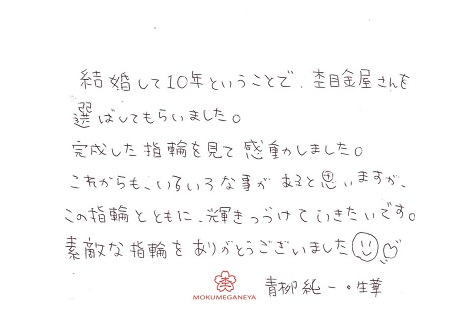 結婚して10年ということで、杢目金屋さんを
選ばしてもらいました。
完成した指輪を見て感動しました。
これからも、いろいろな事があると思いますが、
この指輪とともに、輝きつづけていきたいです。
素敵な指輪をありがとうございました
杢
MOKUMEGANEYA
青柳純一・生華